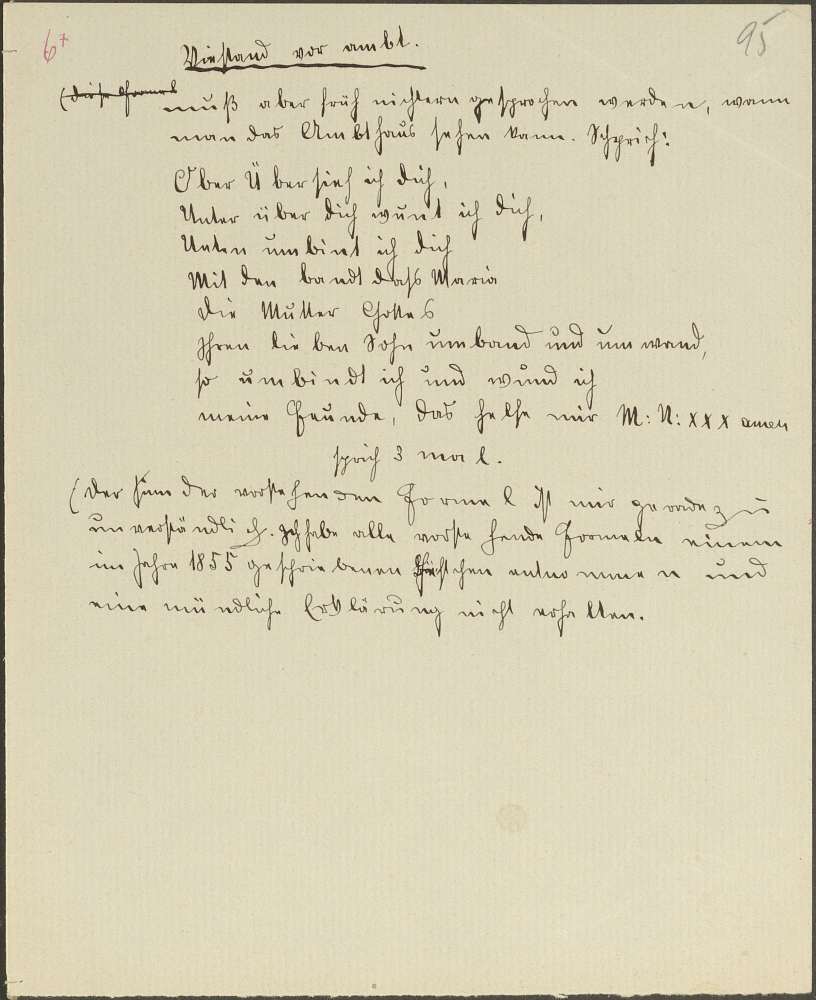 6+
95
Viestand vor ambt.
(diese Formel
muß aber früh nichtern gesprochen werden, wann
man das Ambthaus sehen kann. Schprich:
Ober Übersieh ich dich,
Unter über dich wunt ich dich,
Unten umbint ich dich
Mit den bandt dass Maria
die Mutter Gottes
Ihren lieben Sohn umband und umwand,
so umbindt ich und wund ich
meine Feunde, das helfe mir M: N: x x x amen
sprich 3 mal.
(Der Sinn der vorstehenden Formel ist mir geradezu
unverständlich. Ich habe alle vorstehende Formeln einem
im Jahre 1855 geschriebenen entnommen und
eine mündliche Erklärung nicht erhalten.